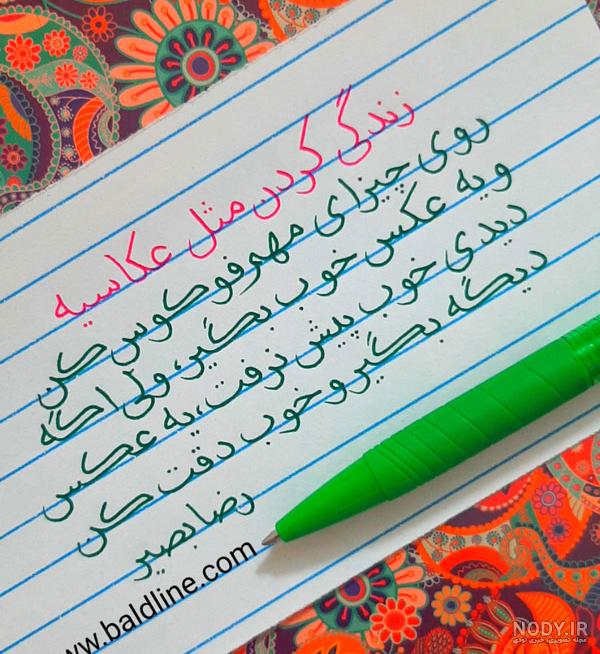 زندگی کردن مثل عکاسیه
روی چیزای مهم فوکوس کن
و یه عکس خوب بگیر، ولی اگه
دیدی خوب پیش نرفت، یه عکس
دیگه بگیر و خوب دقت کن
رضا بصیر
ww.baldline.com
NODY.IR
مجله تصویری، خبری نودی